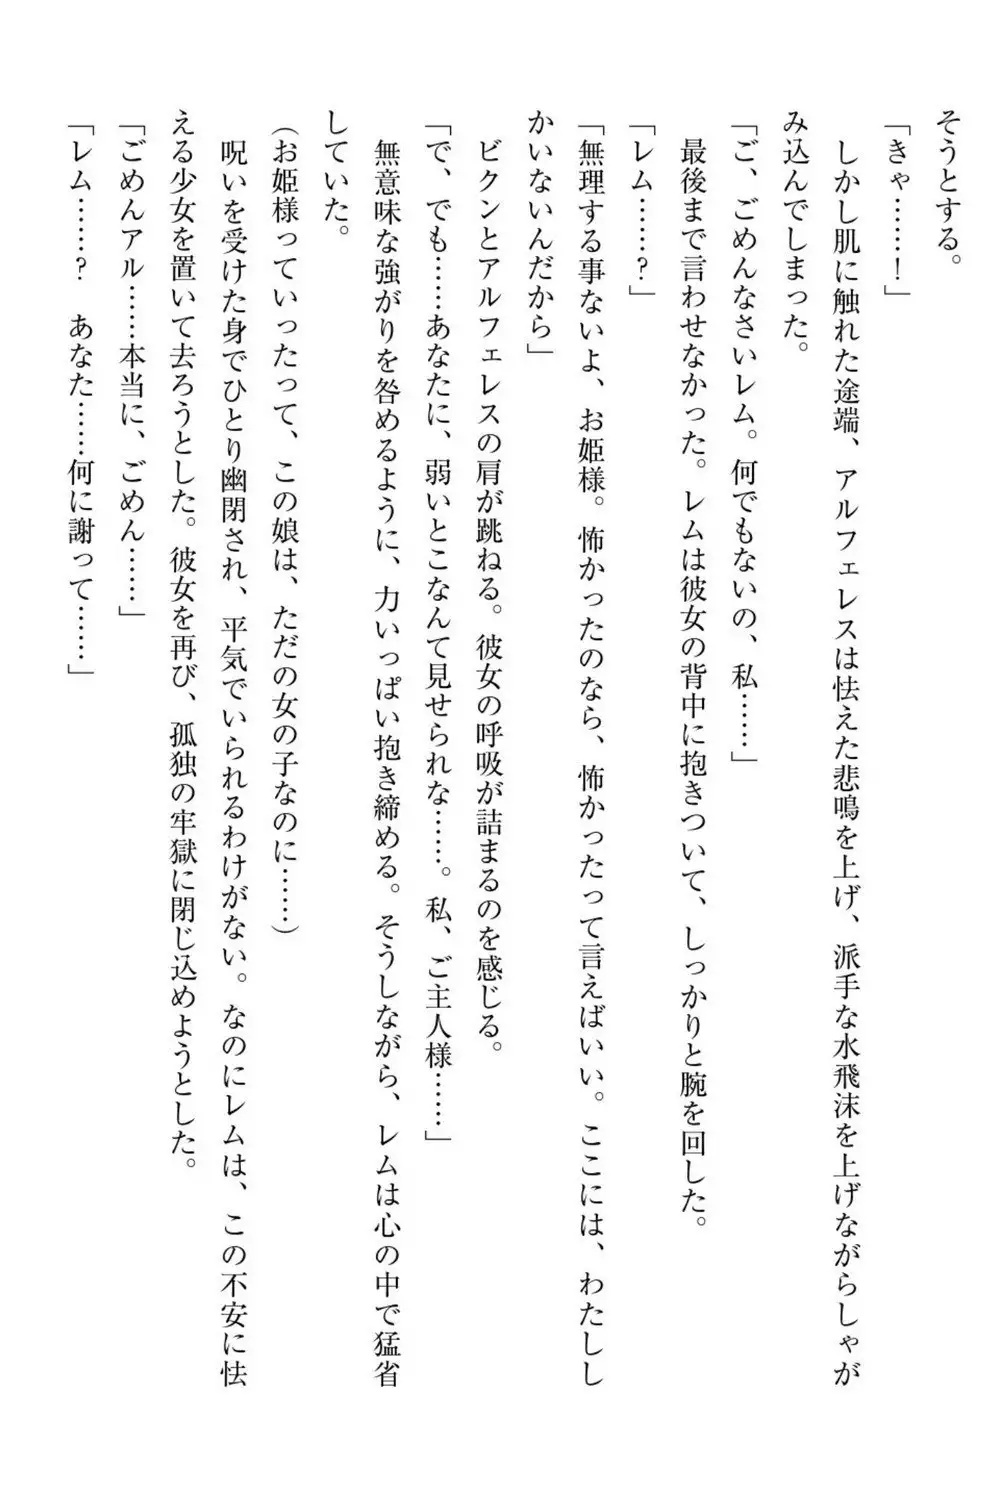 そうとする。
「きゃ……！」
しかし肌に触れた途端、アルフェレスは怯えた悲鳴を上げ、派手な水飛沫を上げながらしゃが
み込んでしまった。
「ご、ごめんなさいレム。何でもないの、私……」
最後まで言わせなかった。レムは彼女の背中に抱きついて、しっかりと腕を回した。
「レム……？」
「無理する事ないよ、お姫様。怖かったのなら、怖かったって言えばいい。ここには、わたしし
かいないんだから」
ビクンとアルフェレスの肩が跳ねる。彼女の呼吸が詰まるのを感じる。
「で、でも……あなたに、弱いとこなんて見せられな……。私、ご主人様……」
無意味な強がりを咎めるように、力いっぱい抱き締める。そうしながら、レムは心の中で猛省
していた。
（お姫様っていったって、この娘は、ただの女の子なのに……）
呪いを受けた身でひとり幽閉され、平気でいられるわけがない。なのにレムは、この不安に怯
える少女を置いて去ろうとした。彼女を再び、孤独の牢獄に閉じ込めようとした。
「ごめんアル……本当に、ごめん……」
「レム……？　あなた……何に謝って……」